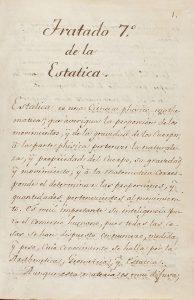 1.
Tratado 7.º
de la
Estatica.
Estatica es una Ciencia phisico mathe
matica, que averigua la proporcion de los
movimientos, y de la gravedad de los Cuerpos
A la parte phisica pertenece la naturale
za, y propriedad del Cuerpo, su gravedad
y movimiento, y a la Mathematica corres
ponde el determinar las proporciones, y
quantidades pertenecientes al movimien
to. Es mui importante su inteligencia pa
ra el comercio humano, pues todas las co
sas se han dispuesto en numero, medida,
y peso, cuio Conocimiento se halla por la
Arithmetica, Geometria, y Estatica.
Aunque esta materia es mui difusa,